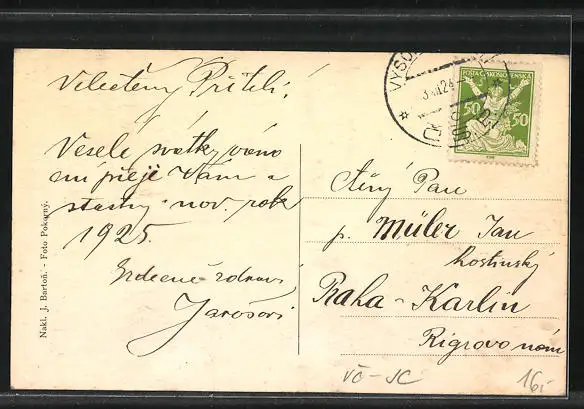 Velectěný Příteli,
Veselé svátky váno
ční přeje Vám a
šťastný nov. rok
1925.
Srdečně zdraví
Jarošovi
Nakl. J. Bartoň. - Foto Pokorný.
VYSO
POŠTA ČESKOSLOVENSKÁ
50 50
Ctěný Pan
p. Müler Jan
hostinský
Praha - Karlín
Rigrovo nám
VČ - JC
16,-